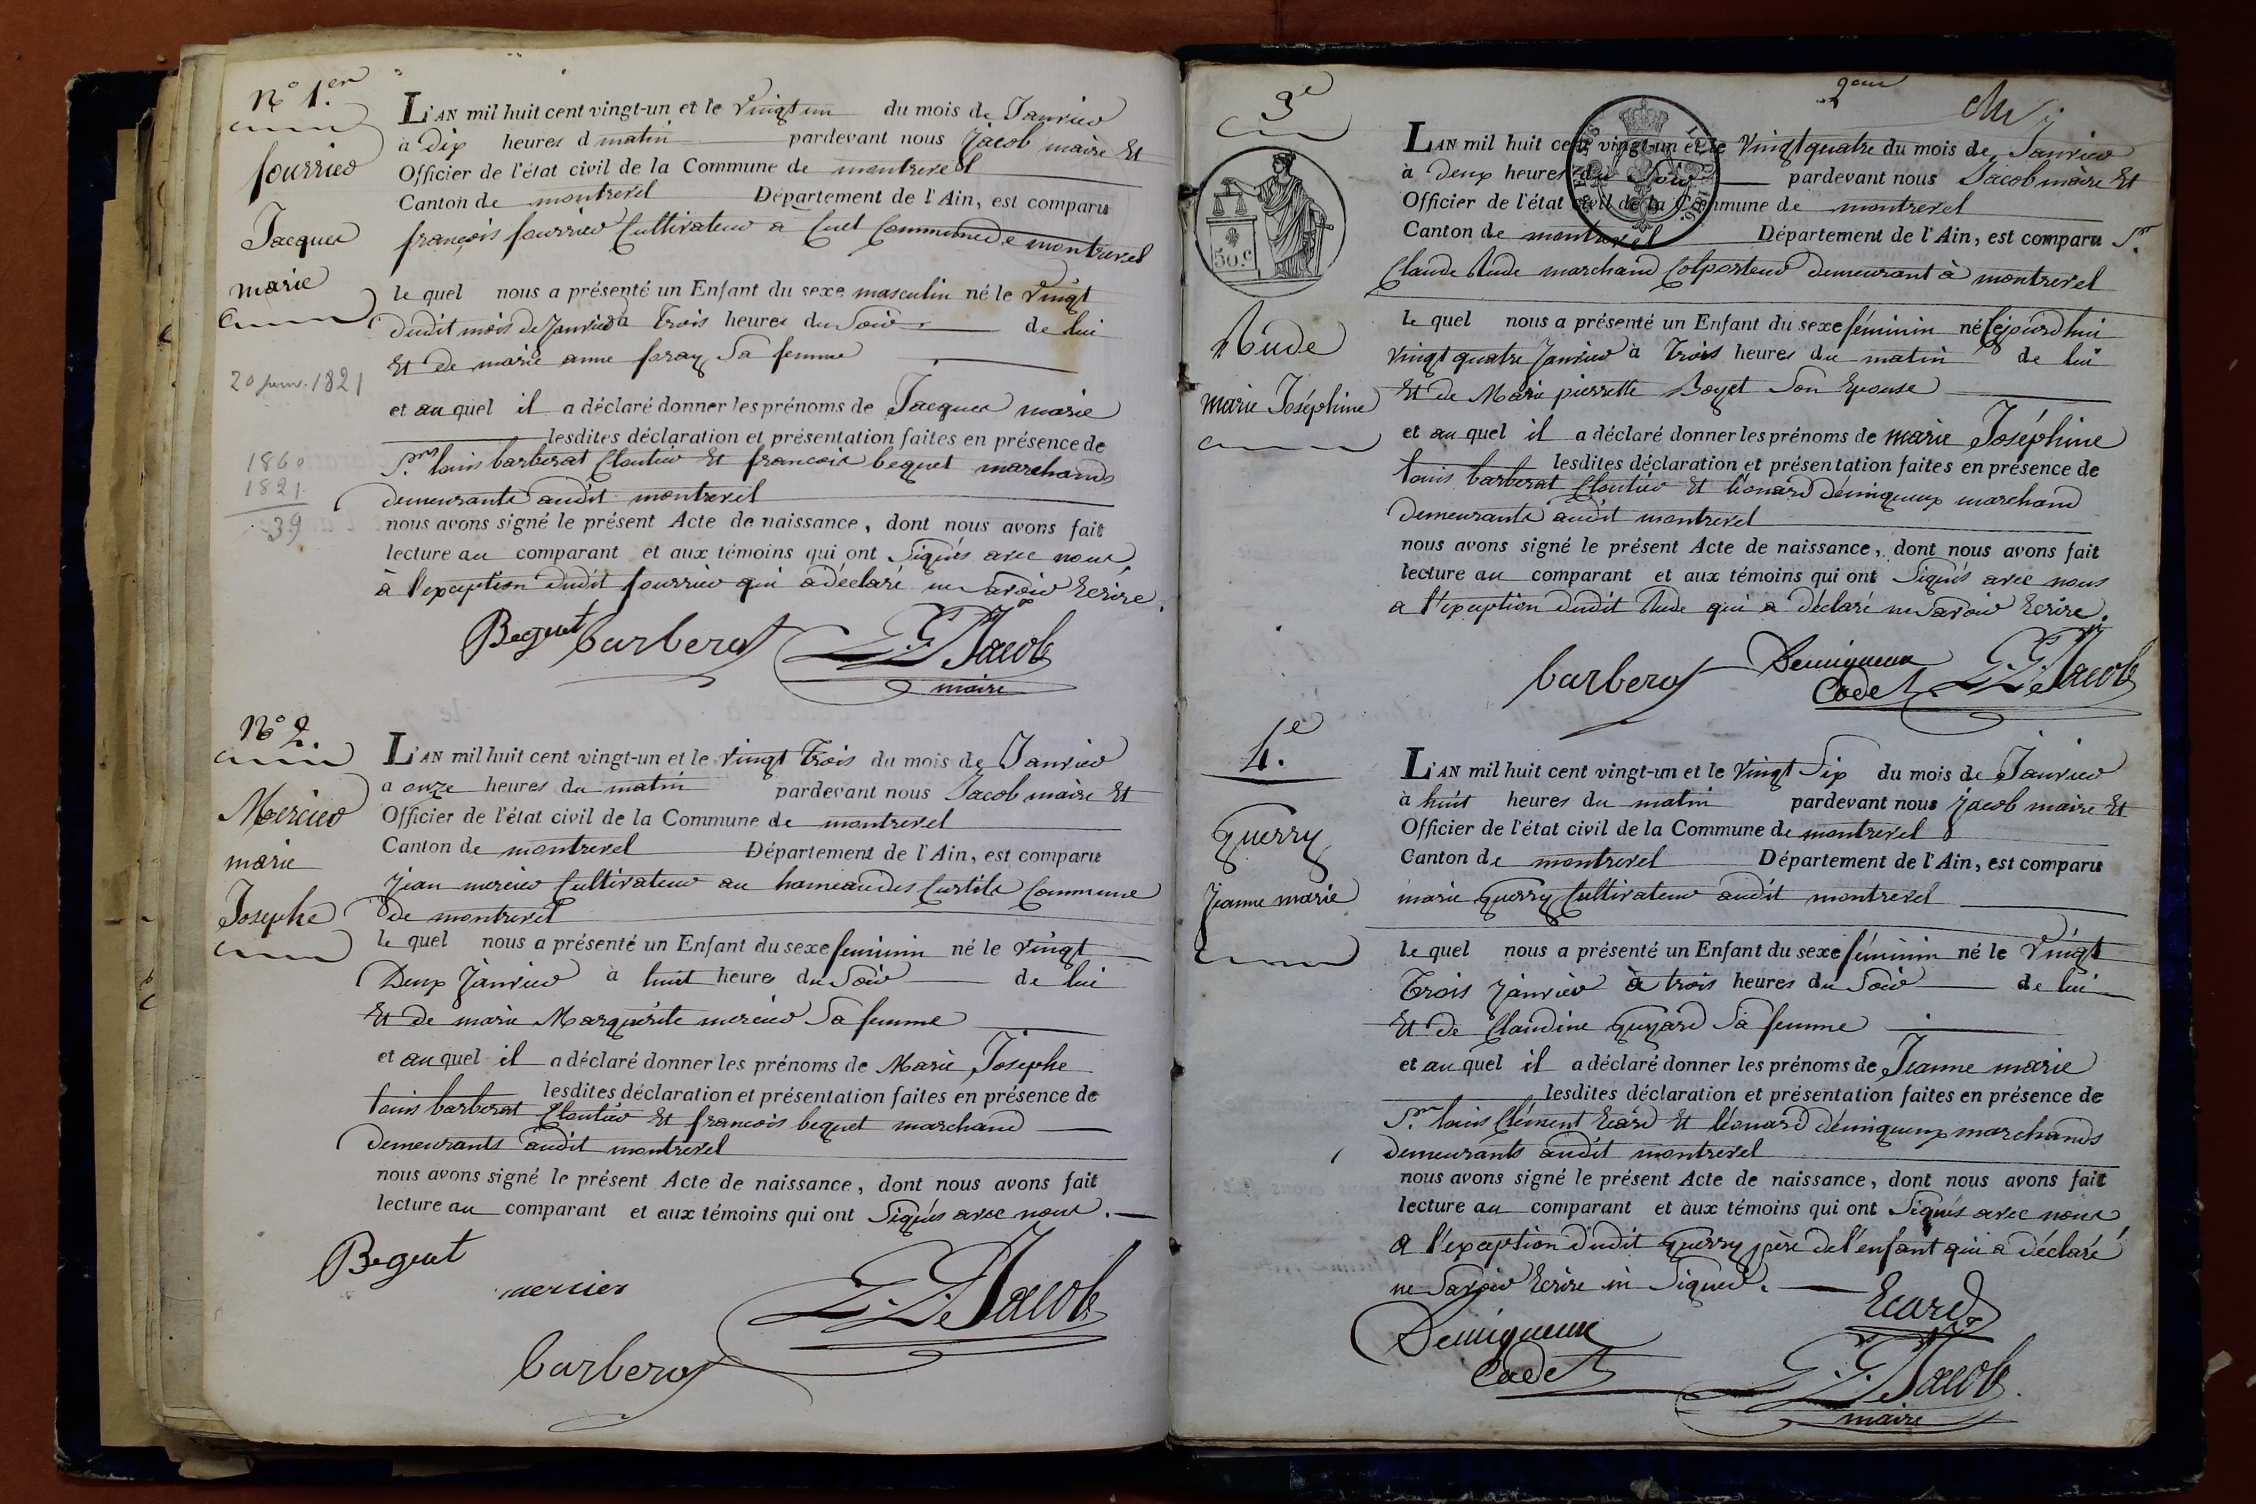 N° 1.er
fourrier
Jacques
marie
20 janv. 1821
1860
1821
39
L'AN mil huit cent vingt-un et le vingt un du mois de Janvier
à dix heures d matin pardevant nous Jacob maire Et
Officier de l'état civil de la Commune de montrevel
Canton de montrevel Département de l'Ain, est comparu
françois fourrier Cultivateur a Cuet Commune de montrevel
le quel nous a présenté un Enfant du sexe masculin né le vingt
dudit mois de Janvier à trois heures du Soir de lui
Et de marie anne foray Sa femme
et au quel il a déclaré donner les prénoms de Jacques marie
lesdites déclaration et présentation faites en présence de
S.rs louis barberat Cloutier Et francois bequet marchands
demeurants audit montrevel
nous avons signé le présent Acte de naissance, dont nous avons fait
lecture au comparant et aux témoins qui ont Signés avec nous,
à l'exception dudit fourrier qui a déclaré ne Savoir Ecrire.
Bequet barberat Jacob
maire
N° 2.
Mercier
marie
Josephe
L'AN mil huit cent vingt-un et le vingt trois du mois de Janvier
a onze heures du matin pardevant nous Jacob maire Et
Officier de l'état civil de la Commune de montrevel
Canton de montrevel Département de l'Ain, est comparu
Jean mercier Cultivateur au hameau des Curtils Commune
de montrevel
le quel nous a présenté un Enfant du sexe feminin né le vingt
Deux Janvier à huit heures du Soir de lui
Et de marie Marguerite mercier Sa femme
et au quel il a déclaré donner les prénoms de Marie Josephe
lesdites déclaration et présentation faites en présence de
louis barberat Cloutier Et francois bequet marchand
demeurants audit montrevel
nous avons signé le présent Acte de naissance, dont nous avons fait
lecture au comparant et aux témoins qui ont Signés avec nous.
Bequet
mercier
Jacob
barberat
2eme
3e
50.c
Aude
marie Joséphine
L'AN mil huit cent vingt-un et le vingt quatre du mois de Janvier
à deux heures du Soir pardevant nous Jacob maire Et
Officier de l'état civil de la Commune de montrevel
Canton de montrevel Département de l'Ain, est comparu S.r
Claude Aude marchand Colporteur demeurant à montrevel
le quel nous a présenté un Enfant du sexe féminin né Cejourd'hui
vingt quatre Janvier à trois heures du matin de lui
Et de Marie pierrette Boyet Son Epouse
et au quel il a déclaré donner les prénoms de marie Joséphine
lesdites déclaration et présentation faites en présence de
louis barberat Cloutier Et léonard démiqueux marchand
demeurants audit montrevel
nous avons signé le présent Acte de naissance, dont nous avons fait
lecture au comparant et aux témoins qui ont Signés avec nous
a l'exception dudit Aude qui a déclaré ne Savoir Ecrire.
barberat Demiqueux Jacob
Cadet
4.e
Guerry
Jeanne marie
L'AN mil huit cent vingt-un et le vingt Six du mois de Janvier
à huit heures du matin pardevant nous Jacob maire Et
Officier de l'état civil de la Commune de montrevel
Canton de montrevel Département de l'Ain, est comparu
marie Guerry Cultivateur audit montrevel
le quel nous a présenté un Enfant du sexe féminin né le vingt
Trois Janvier à trois heures du Soir de lui
Et de Claudine Guyard Sa femme
et au quel il a déclaré donner les prénoms de Jeanne marie
lesdites déclaration et présentation faites en présence de
S.rs louis Clément Ecard Et léonard démiqueux marchands
demeurants audit montrevel
nous avons signé le présent Acte de naissance, dont nous avons fait
lecture au comparant et aux témoins qui ont Signés avec nous
a l'exception dudit Guerry père de l'enfant qui a déclaré
ne Savoir Ecrire ni Signer.
Ecard
Demiqueux
Cadet
Jacob
maire